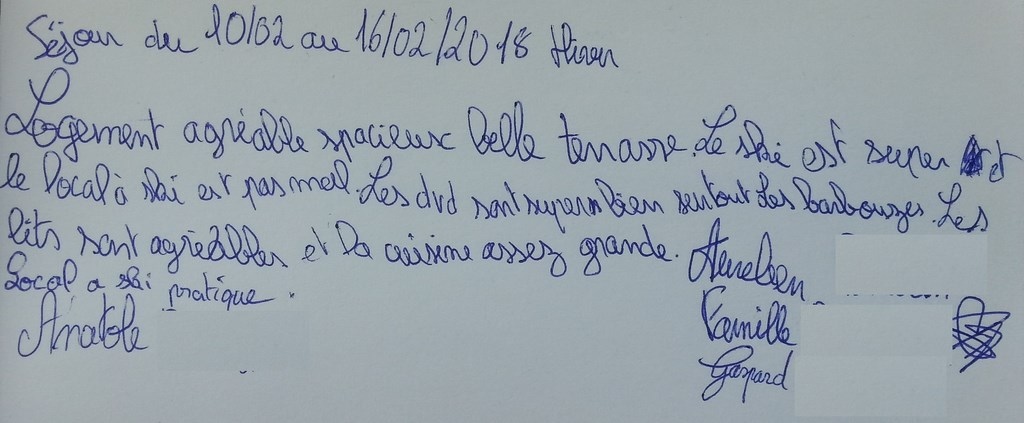 Séjour du 10/02 au 16/02/2018 Hiver
Logement agréable spacieux belle terrasse. Le ski est super et
le local à ski est pas mal. Les dvd sont super bien surtout Les barbouzes. Les
lits sont agréables et la cuisine assez grande.
Local a ski pratique.
Anatole
Aurelien
Famille
Gaspard